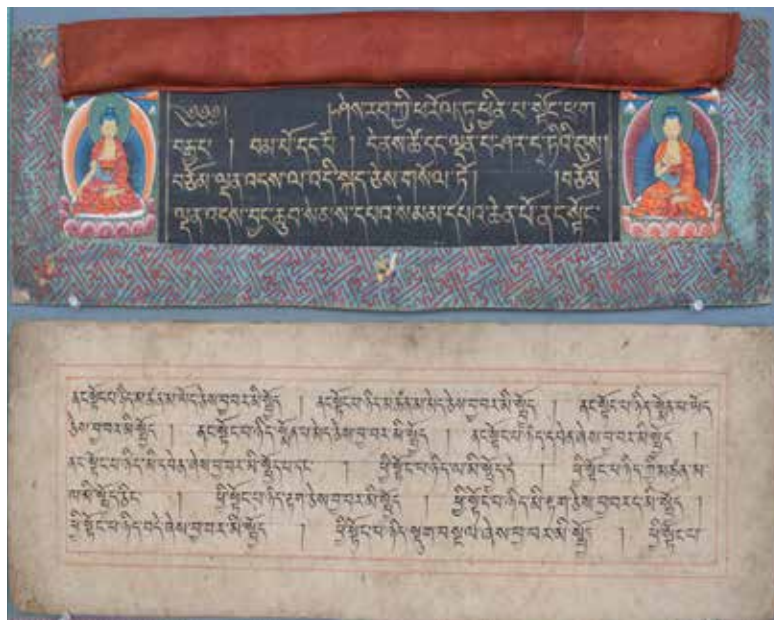 ༄༅༅། །ཤེས་རབ་ཀྱི་ཕ་རོལ་ཏུ་ཕྱིན་པ་སྟོང་ཕྲག་
བརྒྱ་པ། བམ་པོ་དང་པོ། དེ་ནས་ཚེ་དང་ལྡན་པ་ཤ་ར་དྭ་ཏིའི་བུས།
བཅོམ་ལྡན་འདས་ལ་འདི་སྐད་ཅེས་གསོལ་ཏོ། །བཅོམ་
ལྡན་འདས་བྱང་ཆུབ་སེམས་དཔའ་སེམས་དཔའ་ཆེན་པོ་ནང་སྟོང་
ནང་སྟོང་པ་ཉིད་མཚན་མ་ཡོད་ཅེས་བྱ་བར་མི་སྤྱོད། ནང་སྟོང་པ་ཉིད་མཚན་མ་མེད་ཅེས་བྱ་བར་མི་སྤྱོད། ནང་སྟོང་པ་ཉིད་སྨོན་པ་ཡོད་
ཅེས་བྱ་བར་མི་སྤྱོད། ནང་སྟོང་པ་ཉིད་སྨོན་པ་མེད་ཅེས་བྱ་བར་མི་སྤྱོད། ནང་སྟོང་པ་ཉིད་དབེན་ཞེས་བྱ་བར་མི་སྤྱོད།
ནང་སྟོང་པ་ཉིད་མི་དབེན་ཞེས་བྱ་བར་མི་སྤྱོད་པ་དང་། ཕྱི་སྟོང་པ་ཉིད་ལ་མི་སྤྱོད་དེ། ཕྱི་སྟོང་པ་ཉིད་ཀྱི་མཚན་མ་
ལ་མི་སྤྱོད་ཅིང་། ཕྱི་སྟོང་པ་ཉིད་རྟག་ཅེས་བྱ་བར་མི་སྤྱོད། ཕྱི་སྟོང་པ་ཉིད་མི་རྟག་ཅེས་བྱ་བར་མི་སྤྱོད།
ཕྱི་སྟོང་པ་ཉིད་བདེ་ཞེས་བྱ་བར་མི་སྤྱོད། ཕྱི་སྟོང་པ་ཉིད་སྡུག་བསྔལ་ཞེས་བྱ་བར་མི་སྤྱོད། ཕྱི་སྟོང་པ་